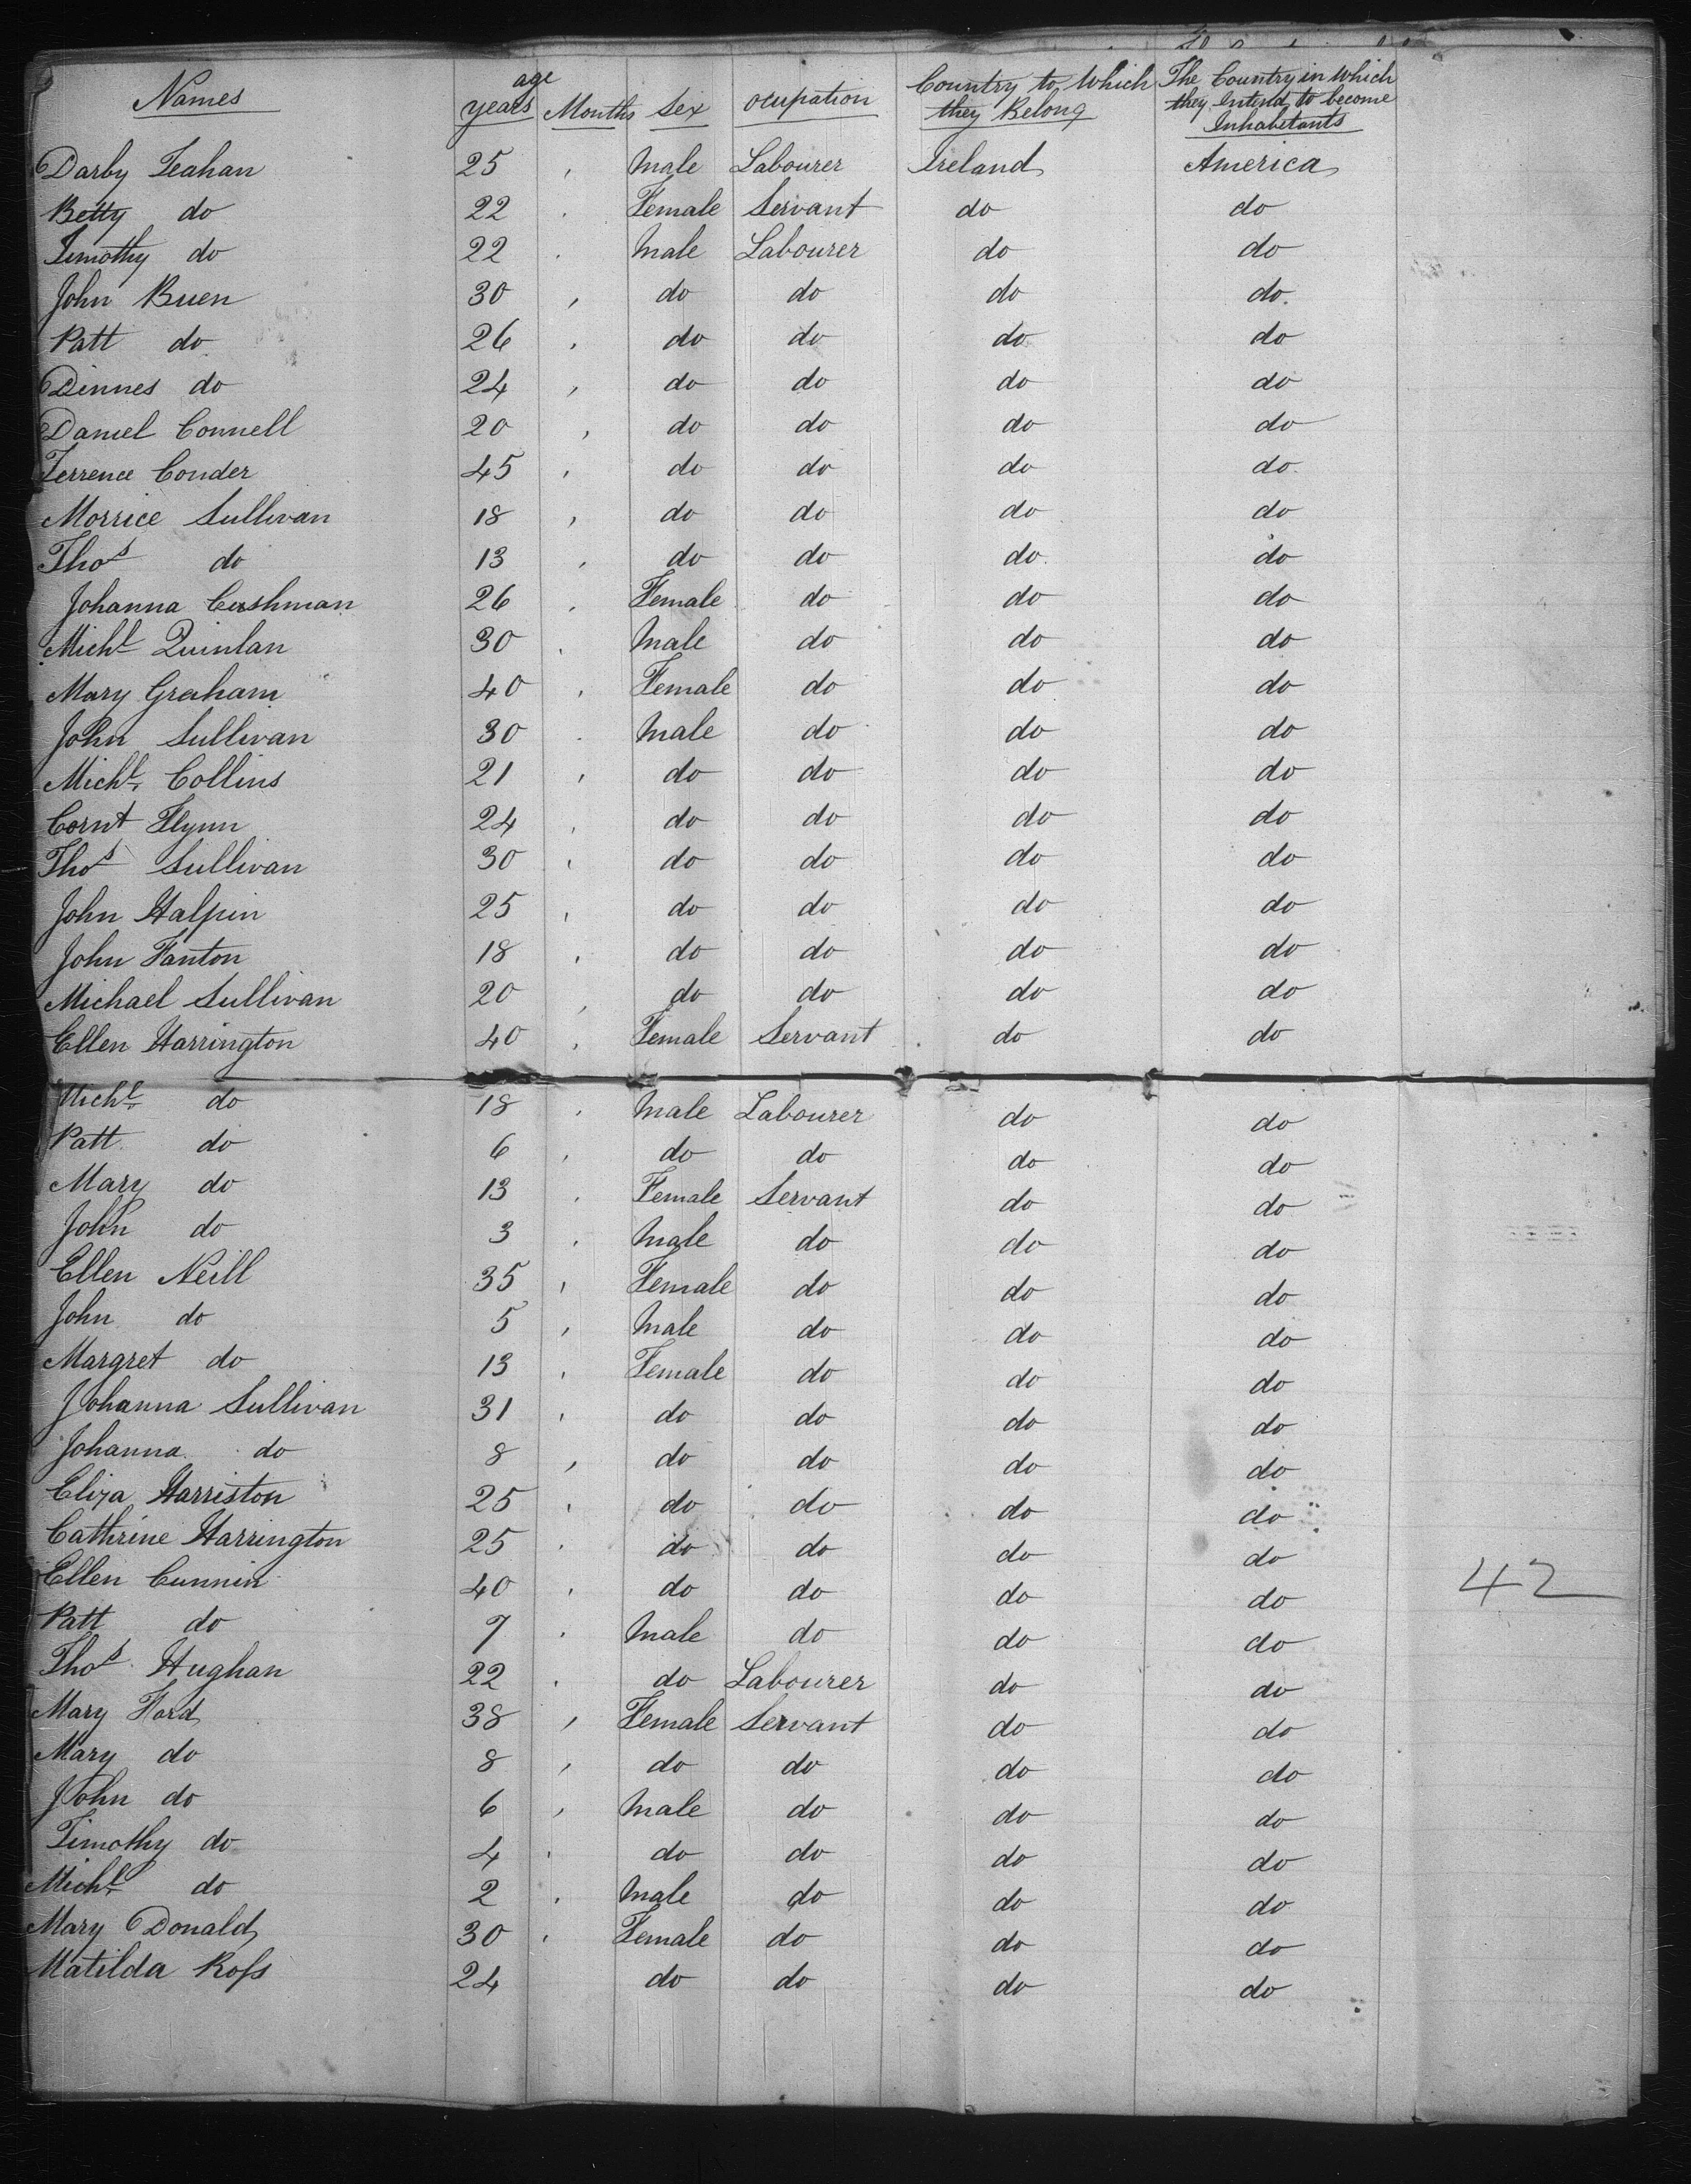 Names age years Months Sex Ocupation Country to Which they Belong The Country in Which they Intend to become Inhabetants
Darby Teahan 25 , Male Labourer Ireland America
Betty do 22 . Female Servant do do
Timothy do 22 . Male Labourer do do
John Buen 30 , do do do do
Patt do 26 , do do do do
Dinnes do 24 , do do do do
Daniel Connell 20 , do do do do
Terrence Conder 45 , do do do do
Morrice Sullivan 18 , do do do do
Thos do 13 , do do do do
Johanna Cushman 26 , Female do do do
Michl Quinlan 30 . Male do do do
Mary Graham 40 , Female do do do
John Sullivan 30 . Male do do do
Michl Collins 21 , do do do do
Cornt Flynn 24 , do do do do
Thos Sullivan 30 , do do do do
John Halpin 25 , do do do do
John Fanton 18 , do do do do
Michael Sullivan 20 , do do do do
Ellen Harrington 40 , Female Servant do do
Michl do 18 , Male Labourer do do
Patt do 6 , do do do do
Mary do 13 . Female Servant do do
John do 3 . Male do do do
Ellen Neill 35 , Female do do do
John do 5 , Male do do do
Margret do 13 , Female do do do
Johanna Sullivan 31 , do do do do
Johanna do 8 , do do do do
Eliza Harriston 25 , do do do do
Cathrine Harrington 25 . do do do do
Ellen Cunnin 40 . do do do do 42
Patt do 7 . Male do do do
Thos Hughan 22 . do Labourer do do
Mary Ford 38 , Female Servant do do
Mary do 8 , do do do do
John do 6 , Male do do do
Timothy do 4 . do do do do
Michl do 2 . Male do do do
Mary Donald 30 . Female do do do
Matilda Ross 24 do do do do